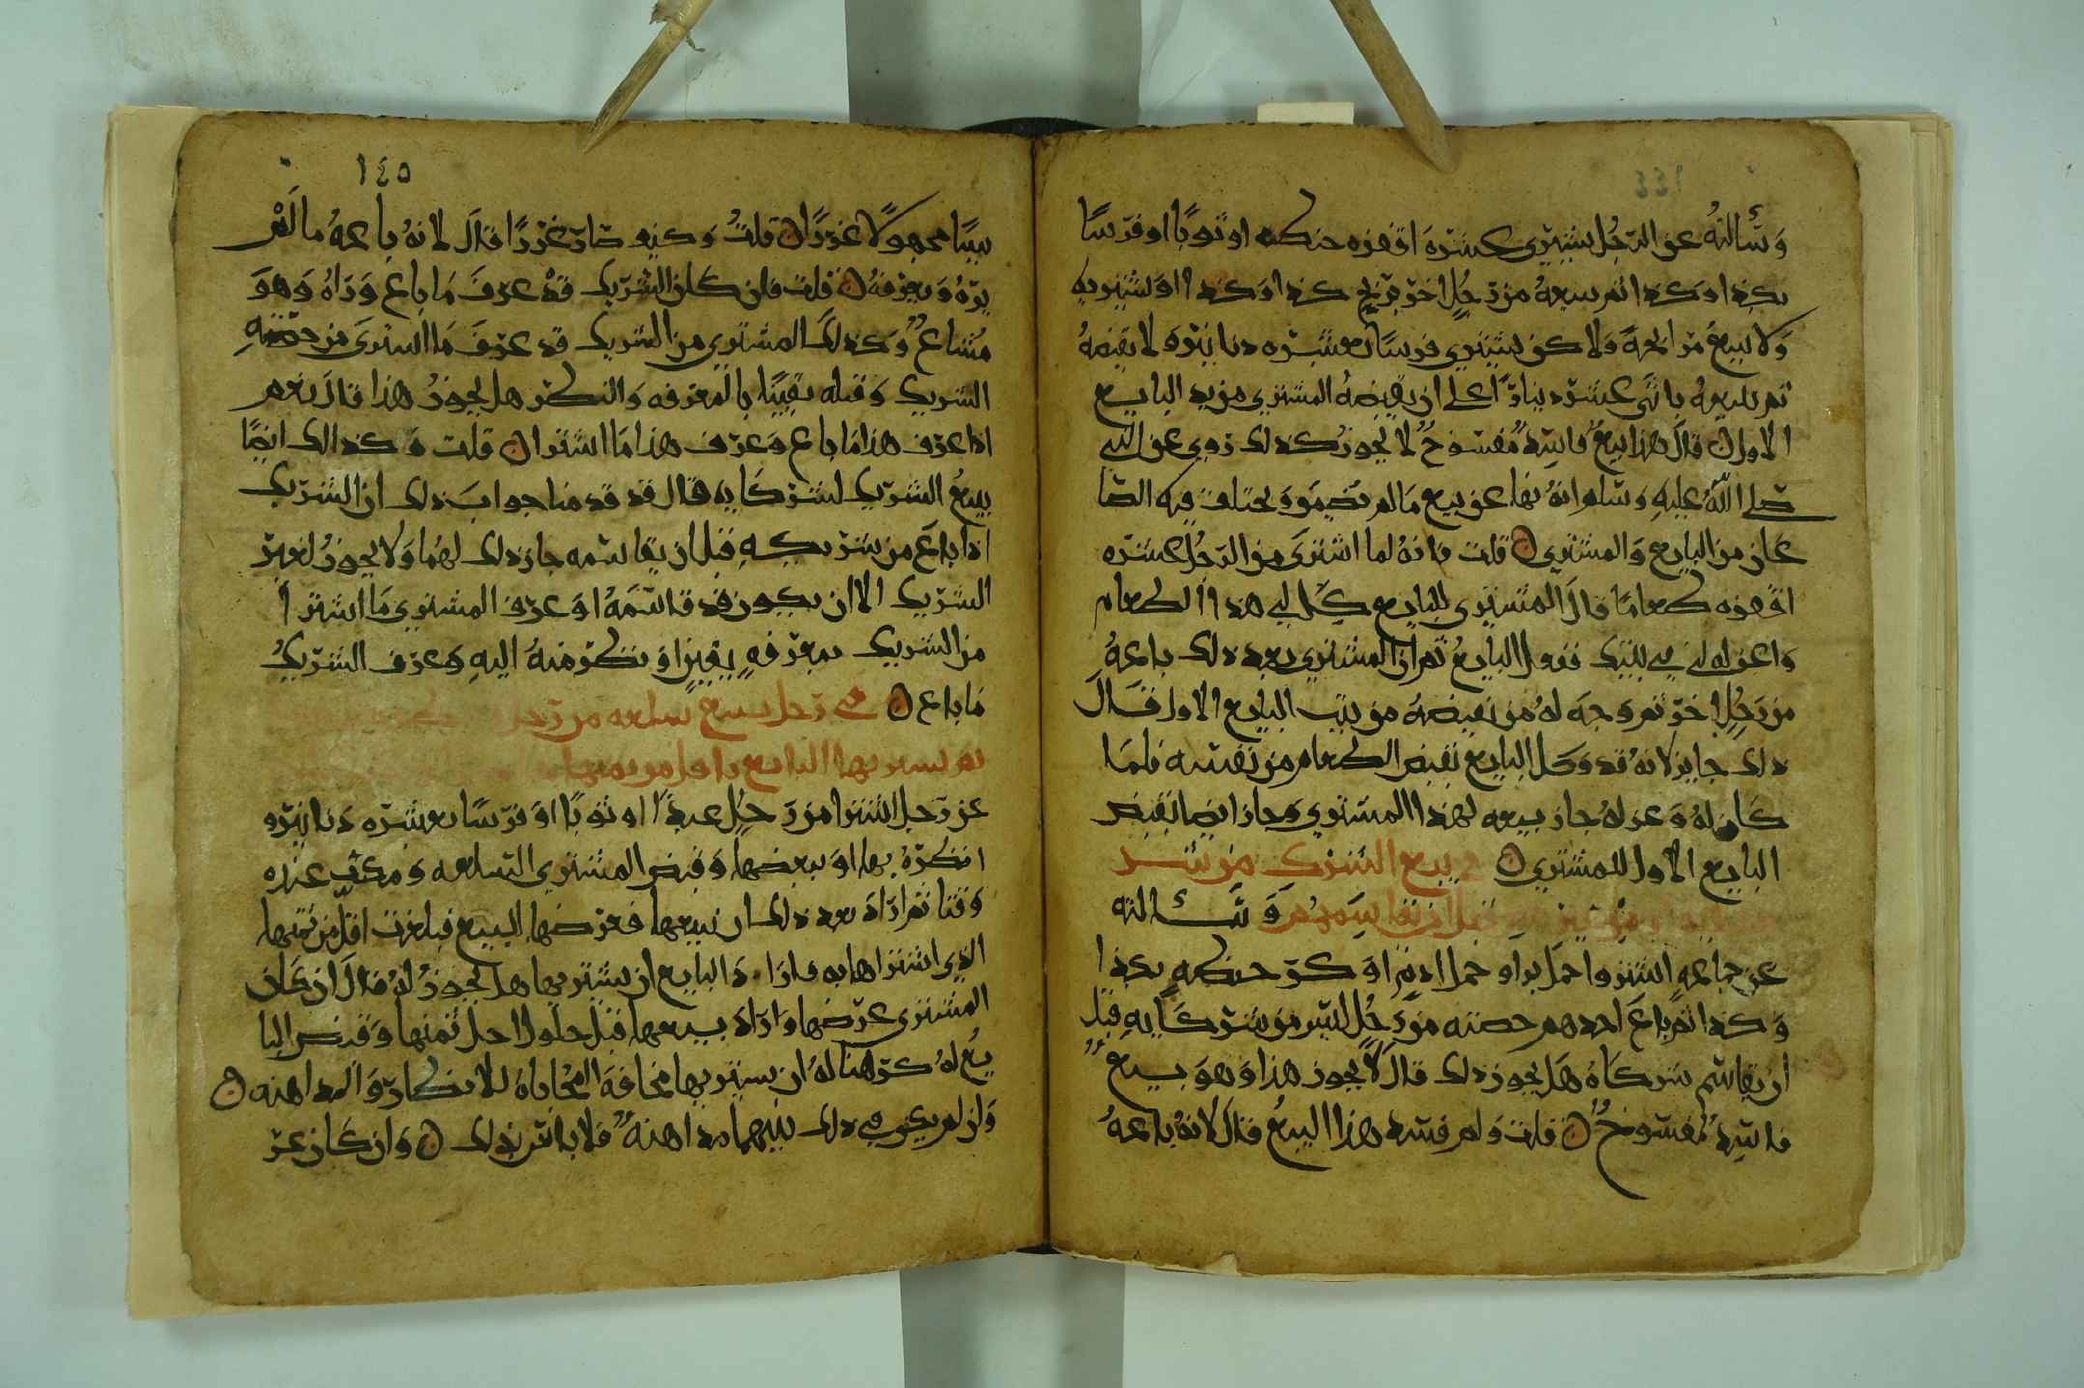 وسألته عن الرجل يشتري عشرة اقفزه حنطه او ثوبًا او فرسًا
بكذا وكذا ثم يبيعهُ من رَجُلٍ اخر بربح كذا وكذا او يشتريه
ولا يبيعُ مرابحةً ولاكن يشتري فرسًا بعشره دنانيره لا يقبضهُ
ثم يبيعه باثني عشر دينارًا على ان يقبضهُ المشتري من يد البايع
الاول قال هذا بيعٌ فاسِدٌ مفسوخٌ لا يجوزُ كذلك روي عن النبي
صلى اللهُ عليهِ وسلم انهُ نها عن بيع مالم يضمن ويختلف فيه الصا
عان من البايع والمشتري قلت فانهُ لما اشترى من الرجُل عشره
اقفزه طعامًا قال المشتري للبايع كِل لي هذا الطعام
واعزله لي في بيتك ففعل البايعُ ثم ان المشتري بعد ذلك باعهُ
من رجُلٍ اخر ثم وجه لهُ من يقبضهُ من بيت البايع الاول فقال
ذلك جايز لانهُ قد وكل البايع بقبض الطعام من نفسه فلما
كاله وعزلهُ جاز بيعه لهذا المشتري وجاز ايضا بقبض
البايع الاول للمشتري في بيع الشرك من شر
قبل ان يقاسِمهُم وسألته
عن جماعهٍ اشتروا حمل بر او حمل ادم او كر حنطهٍ بكذا
وكذا ثم باع احدهم حصته من رَجُلٍ ليس من شركايهِ قبل
ان يقاسم شركاهُ هل يجوز ذلك قال لا يجوز هذا وهو بيعٌ
فاسِدٌ مفسوخٌ قلت ولم فسد هذا البيعُ قال لانهُ باعهُ
١٤٥
بيعًا مجهولاً غررًا قلتُ وكيف صار غررًا قال لانهُ باعهُ مالم
يرهُ ويعرفهُ قلت فان كان الشريك قد عرف ما باع وراهُ وهو
مُشاعٌ وكذلك المشتري من الشريك قد عرف ما اشترى من حصته
الشريك وقبله يقينًا بالمعرفه والنظر هل يجوزُ هذا قال نعم
اذا عرف هذا ما باع وعرف هذا ما اشترا قلت وكذلك ايضًا
بيعُ الشريك لشركايه قال قد قدمنا جواب ذلك ان الشريك
اذا باع من شريكهِ قبل ان يقاسمه جاز ذلك لهُما ولا يجوزُ لغير
الشريك الا ان يكون قد قاسمهُ او عرف المشتري ما اشترا
من الشريك بمعرفهٍ بيقينٍ او نظر منهُ اليهِ وعرف الشريكُ
ما باع في رجل يبيع سلعه من رجل
ثم يشتريها البايع باقل من ثمنها
عن رجل اشترا من رجلٍ عبدًا او ثوبًا او فرسًا بعشره دنانيره
انظرهُ بها او ببعضها وقبض المشتري السلعه ومكثت عنده
وقتا ثم اراد بعد ذلك ان يبيعها فعرضها للبيع فبلغت اقل من ثمنها
الذي اشتراها به فاراد البايع ان يشتريها هل يجوزُ لهُ قال ان كان
المشتري عرضها واراد بيعها قبل حلول اجل ثمنها وقبض البا
يع لهُ كرهنا لهُ ان يشتريها مخافة المُحاباهُ للانظار والمداهنه
وان لم يكن في ذلك بينهما مداهنهٌ فلا باس بذلك وان كان عر